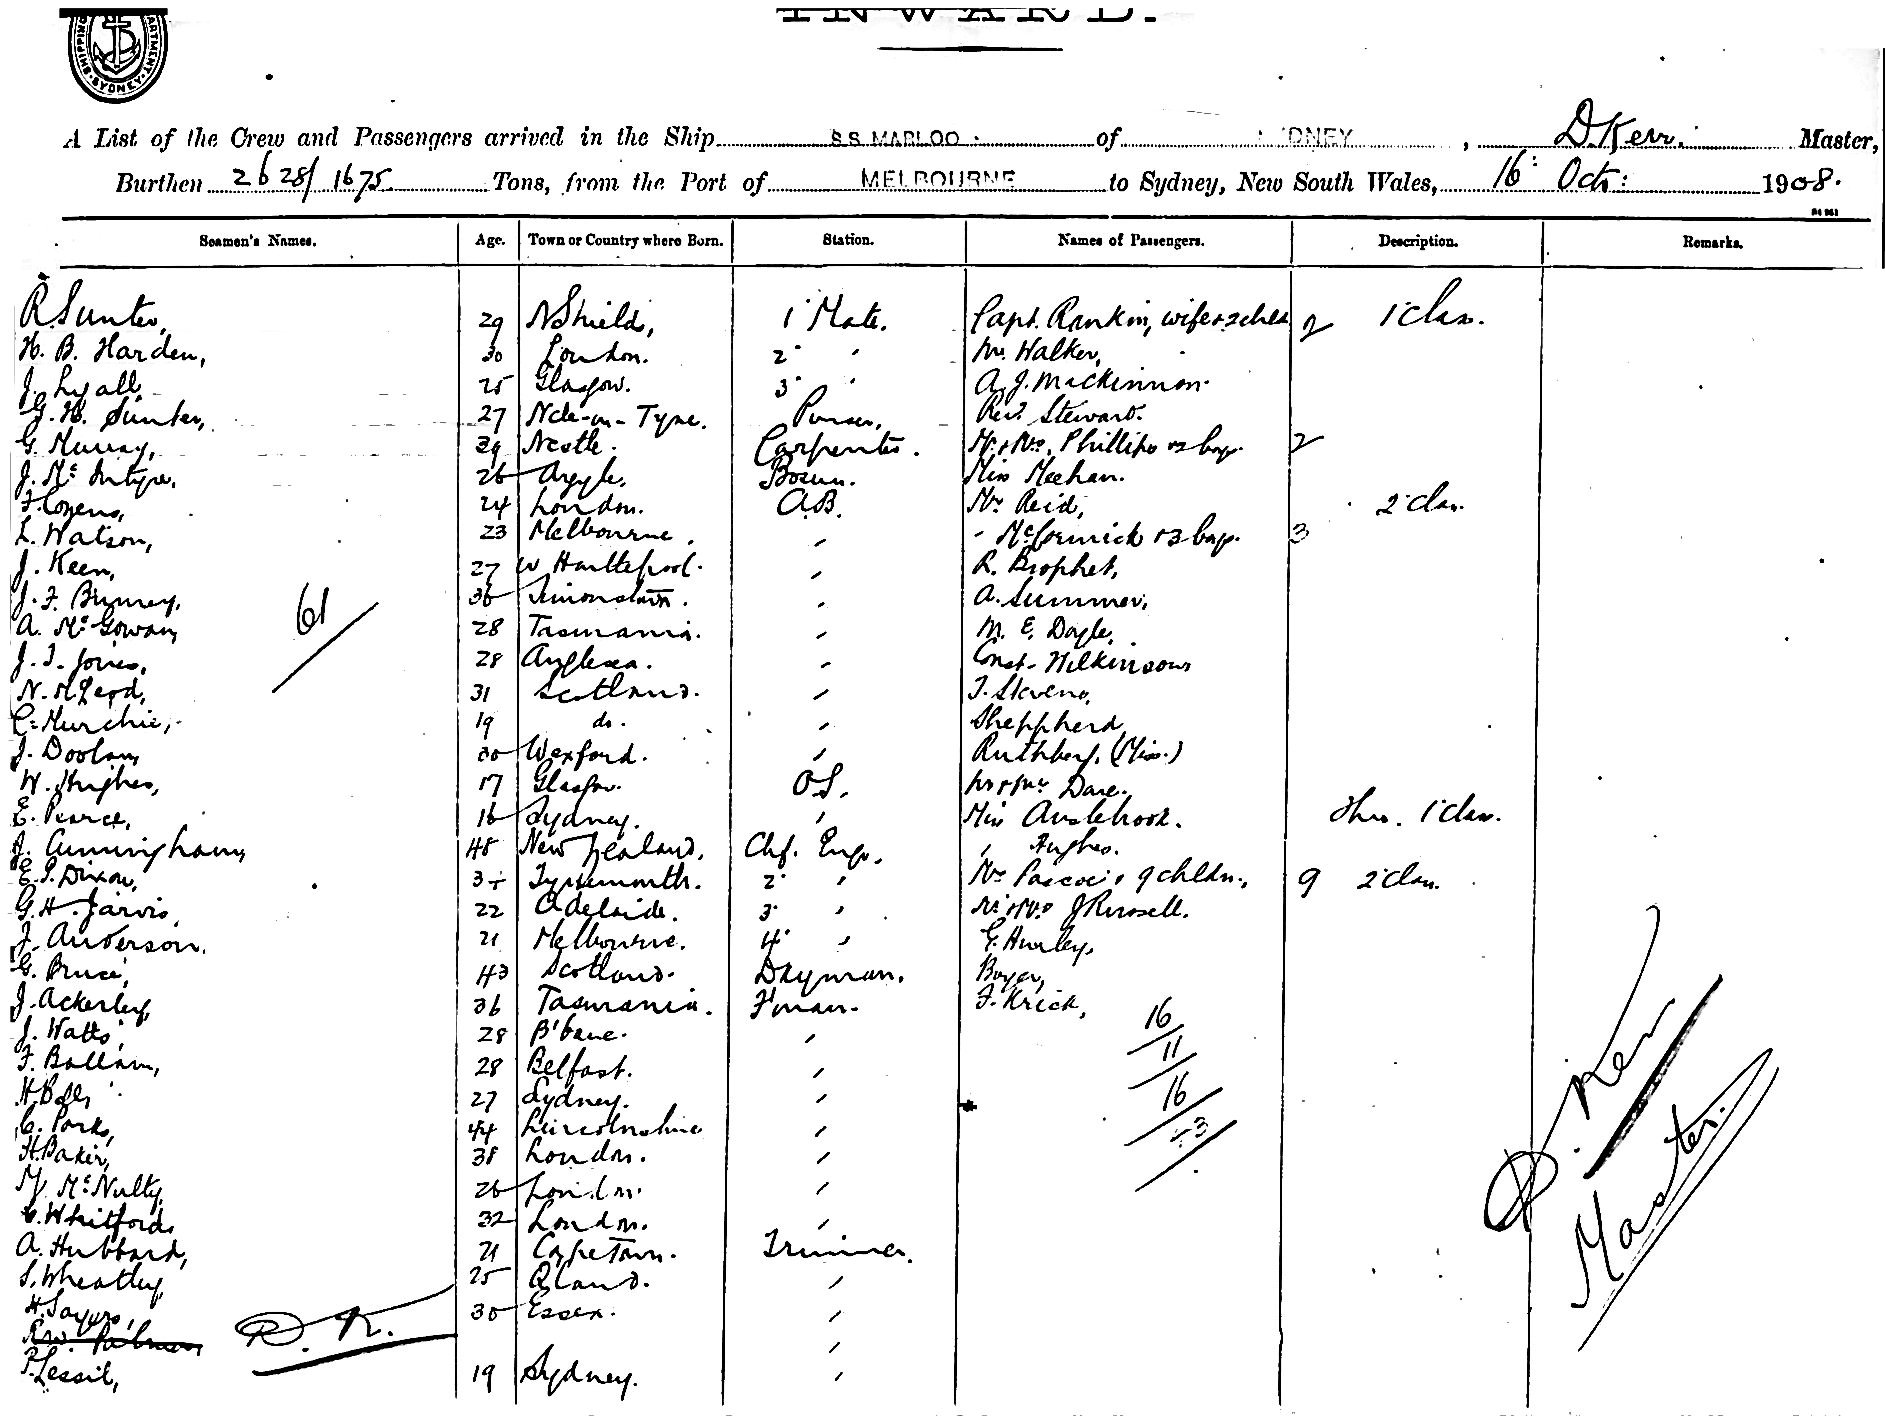 INWARD.
SYDNEY
A List of the Crew and Passengers arrived in the Ship S.S. MARLOO of SYDNEY, D. Kerr. Master,
Burthen 2628/1675 Tons, from the Port of MELBOURNE to Sydney, New South Wales, 16: Octr: 1908.
Seamen's Names. Age. Town or Country where Born. Station. Names of Passengers. Description. Remarks.
R. Sunter, 29 N Shields, 1 Mate. Capt. Rankin, wife & 2 chldn 2 1 Class.
H. B. Harden, 30 London. 2 " Mr. Walker,
J. Lyall, 25 Glasgow. 3 " A. J. MacKinnon.
G. H. Sunter, 27 Ncle-on-Tyne. Purser, Revd. Steward.
G. Murray, 39 Ncstle. Carpenter. Mr. & Mrs. Phillips & 2 boys. 2
J. McIntyre, 26 Argyle. Bosun. Miss Meehan.
F. Cozens, 24 London. A.B. Mr Reid, 2 Class.
L. Watson, 23 Melbourne. " " McCormick & 3 boys. 3
J. Keen, 27 W Hartlepool. " R. Prophet,
J. F. Binney, 36 Simonstown. " A. Summer,
A. McGowan, 61 28 Tasmania. " M. E. Doyle,
J. T. Jones, 28 Anglesea. " Const. Wilkinson,
N. McLeod, 31 Scotland. " T. Stevens,
C. Murchie, 19 do. " Sheppherd,
J. Doolan, 30 Wexford. " Ruthberg, (Miss.)
W. Hughes, 17 Glasgow. O.S. Mr & Mrs Dare.
E. Pearce, 16 Sydney. " Miss Auslebrook. Thro. 1 Class.
J. Cunningham, 48 New Zealand. Chf. Engr. " Hughes.
E. P. Dixon, Tynemouth. 2 " Mrs Pascoe & 9 chldn., 9 2 Class.
G. H. Jarvis, 22 Adelaide. 3 " Mr & Mrs J Russell.
J. Anderson. 21 Melbourne. 4 " G. Hurley,
G. Bruce, 43 Scotland. Dkyman. Boyer,
J. Ackerley, 36 Tasmania. F'man. F. Krick,
J. Watts, 28 B'bane. " 16
F. Ballam, 28 Belfast. " 11
H. Bell, 27 Sydney. " 16
C. Parks, 44 Lincolnshire " 43
H. Baker, 38 London. "
M. McNulty, 26 London. "
C. Whitford, 32 London. "
A. Hubbard, 21 CapeTown. Trimmer.
S. Wheatley, 25 Qland. "
H. Sayers, 30 Essex. "
R. W. Palmer, D. K. "
P. Lessil, 19 Sydney. "
D. Kerr
Master.